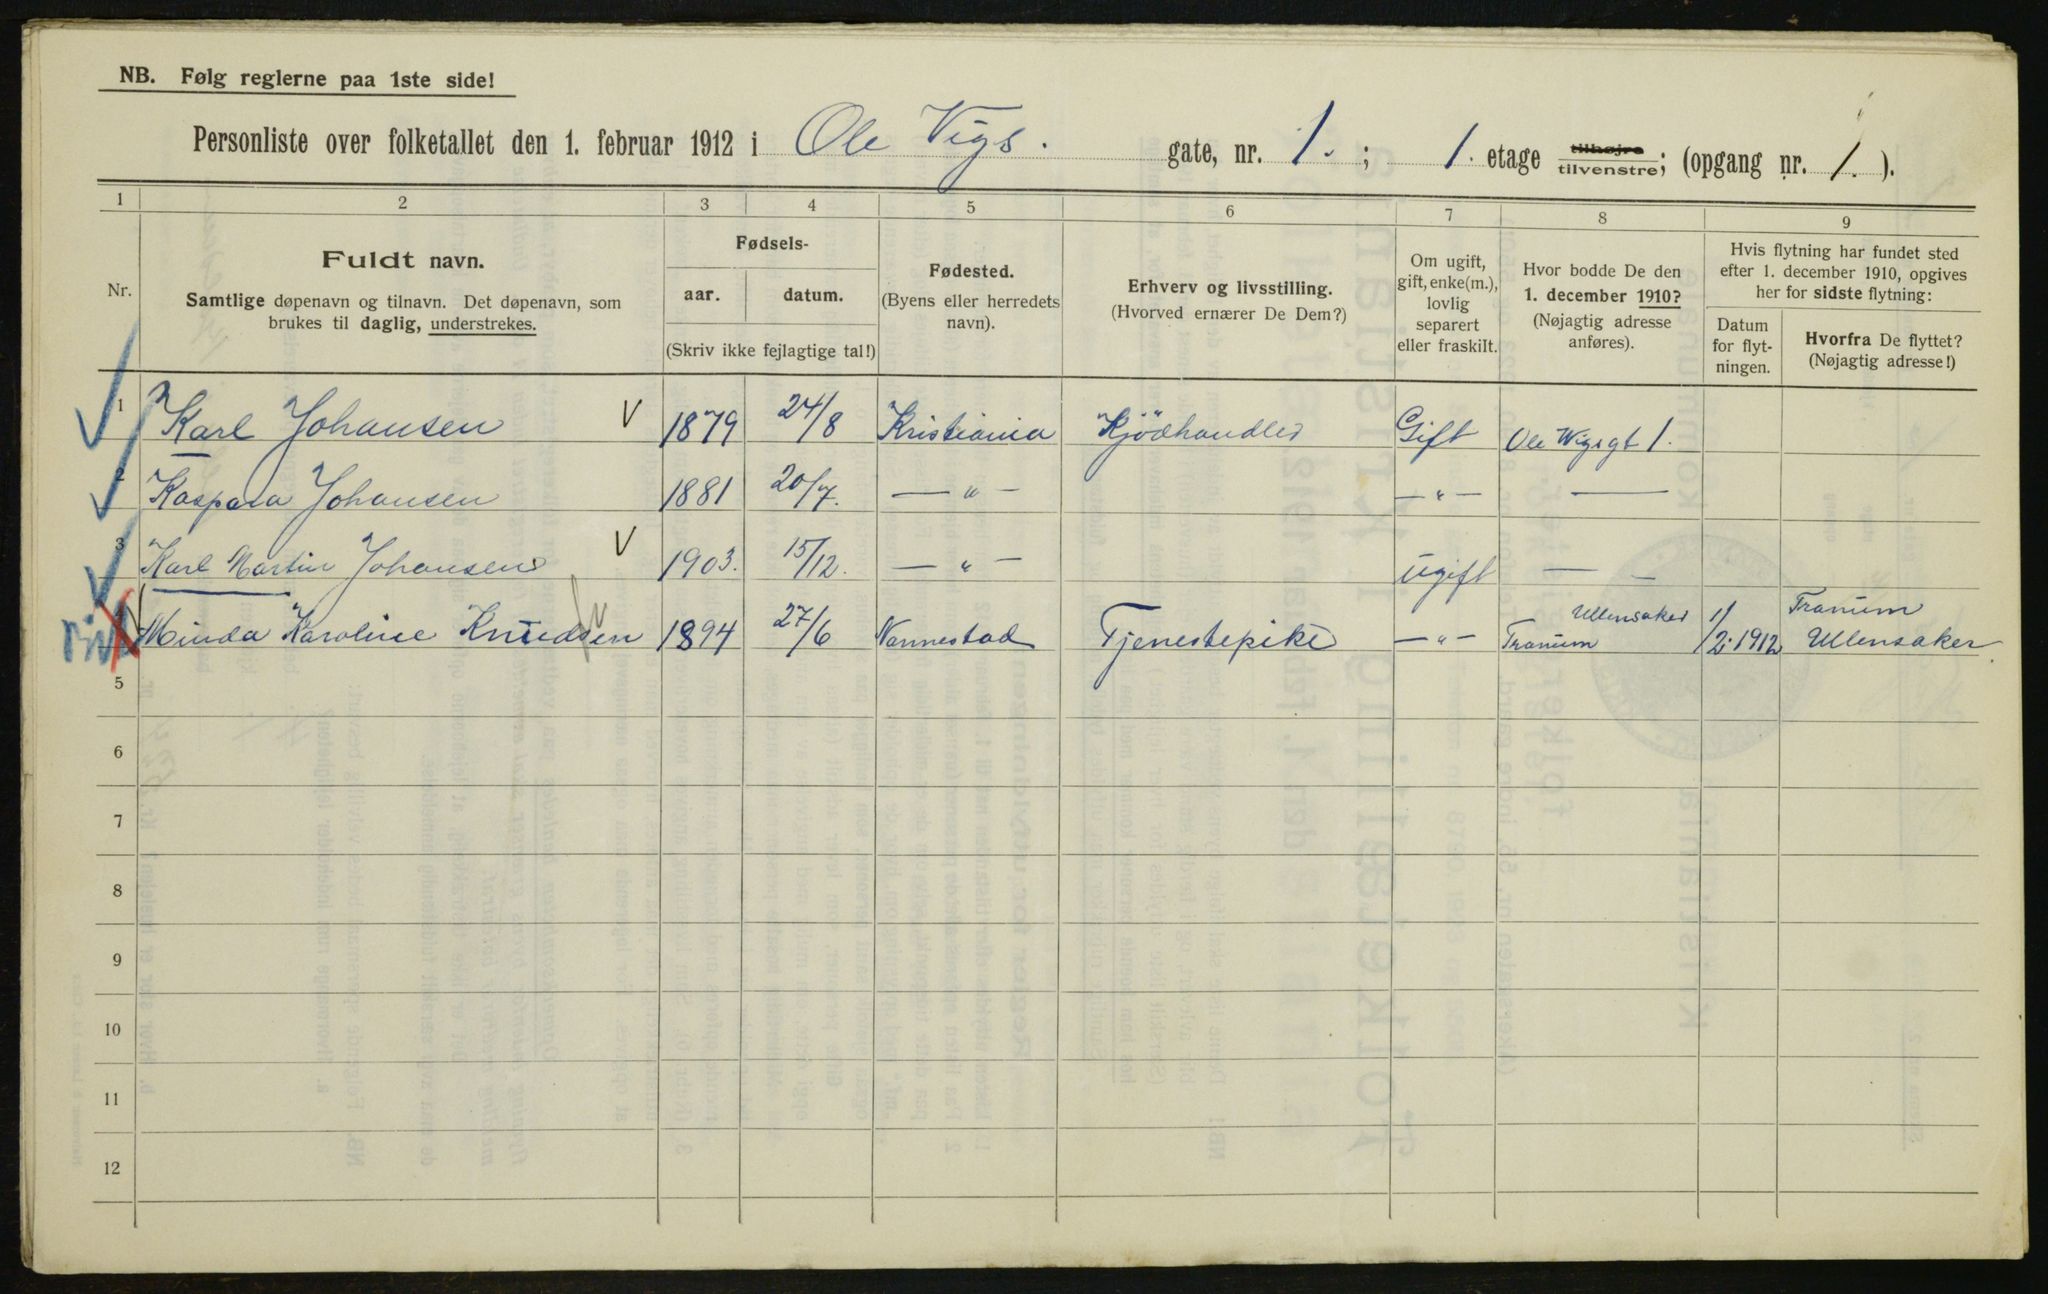 NB. Følg reglerne paa 1ste side!
Personliste over folketallet den 1. februar 1912 i Ole Vigs. gate, nr. 1.; 1. etage tilhøjre/tilvenstre; (opgang nr. 1.).
1 2 3 4 5 6 7 8 9
Nr.
Fuldt navn.
Samtlige døpenavn og tilnavn. Det døpenavn, som
brukes til daglig, understrekes.
Fødsels-
aar. datum.
(Skriv ikke fejlagtige tal!)
Fødested.
(Byens eller herredets
navn).
Erhverv og livsstilling.
(Hvorved ernærer De Dem?)
Om ugift,
gift, enke(m.),
lovlig
separert
eller fraskilt.
Hvor bodde De den
1. december 1910?
(Nøjagtig adresse
anføres).
Hvis flytning har fundet sted
efter 1. december 1910, opgives
her for sidste flytning:
Datum
for flyt-
ningen.
Hvorfra De flyttet?
(Nøjagtig adresse!)
1 Karl Johansen 1879 24/8 Kristiania Kjödhandler Gift Ole Wigsgt 1.
2 Kaspara Johansen 1881 20/7. — " — — " — —
3 Karl Martin Johansen 1903. 15/12. — " — Ugift — —
4 Minda Karoline Knudsen 1894 27/6 Nannestad Tjenestepike — " — Ullensaker Tranum 1/2. 1912 Tranum Ullensaker
5
6
7
8
9
10
11
12